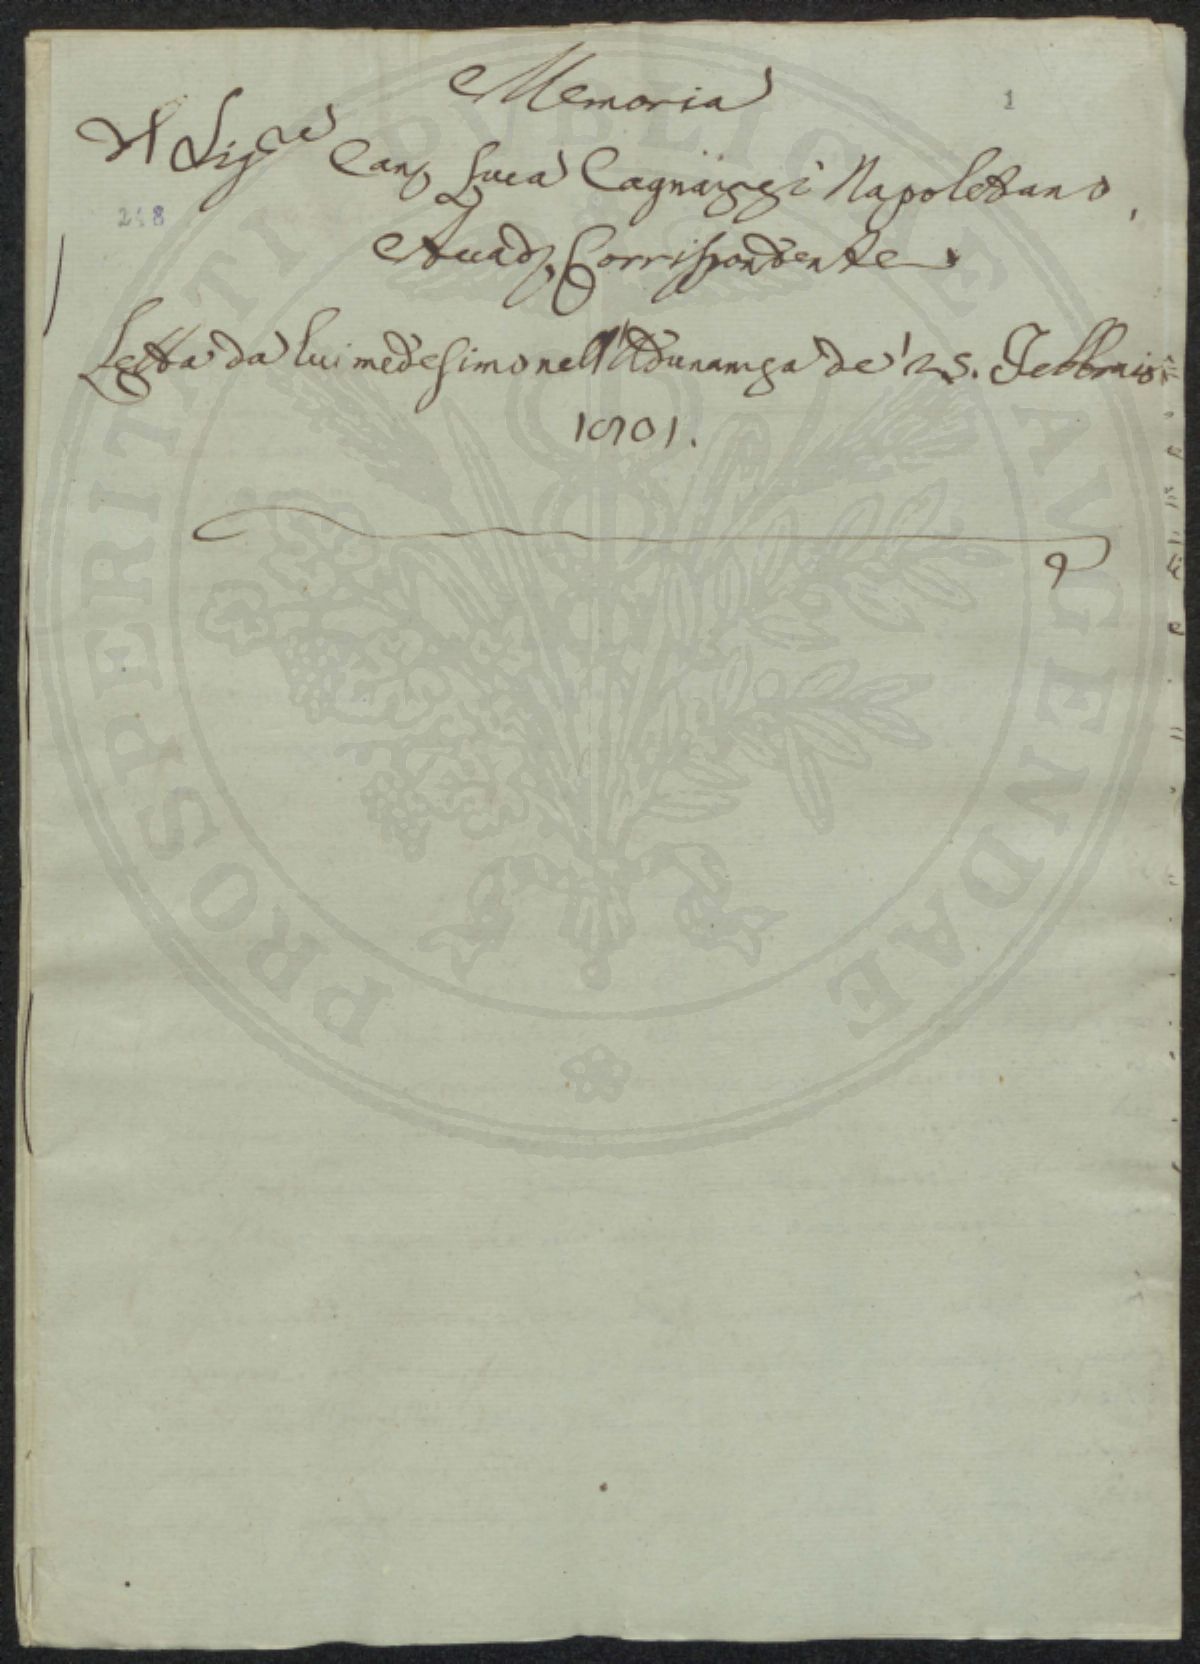 Memoria
1
Del Sig.re Can. Luca Cagnazzi Napoletano,
248
Accad. Corrispondente
Letta da lui medesimo nell'Adunanza de' 25. Febbraio
1801.
PROSPERITATI PVBLICAE AVGENDAE